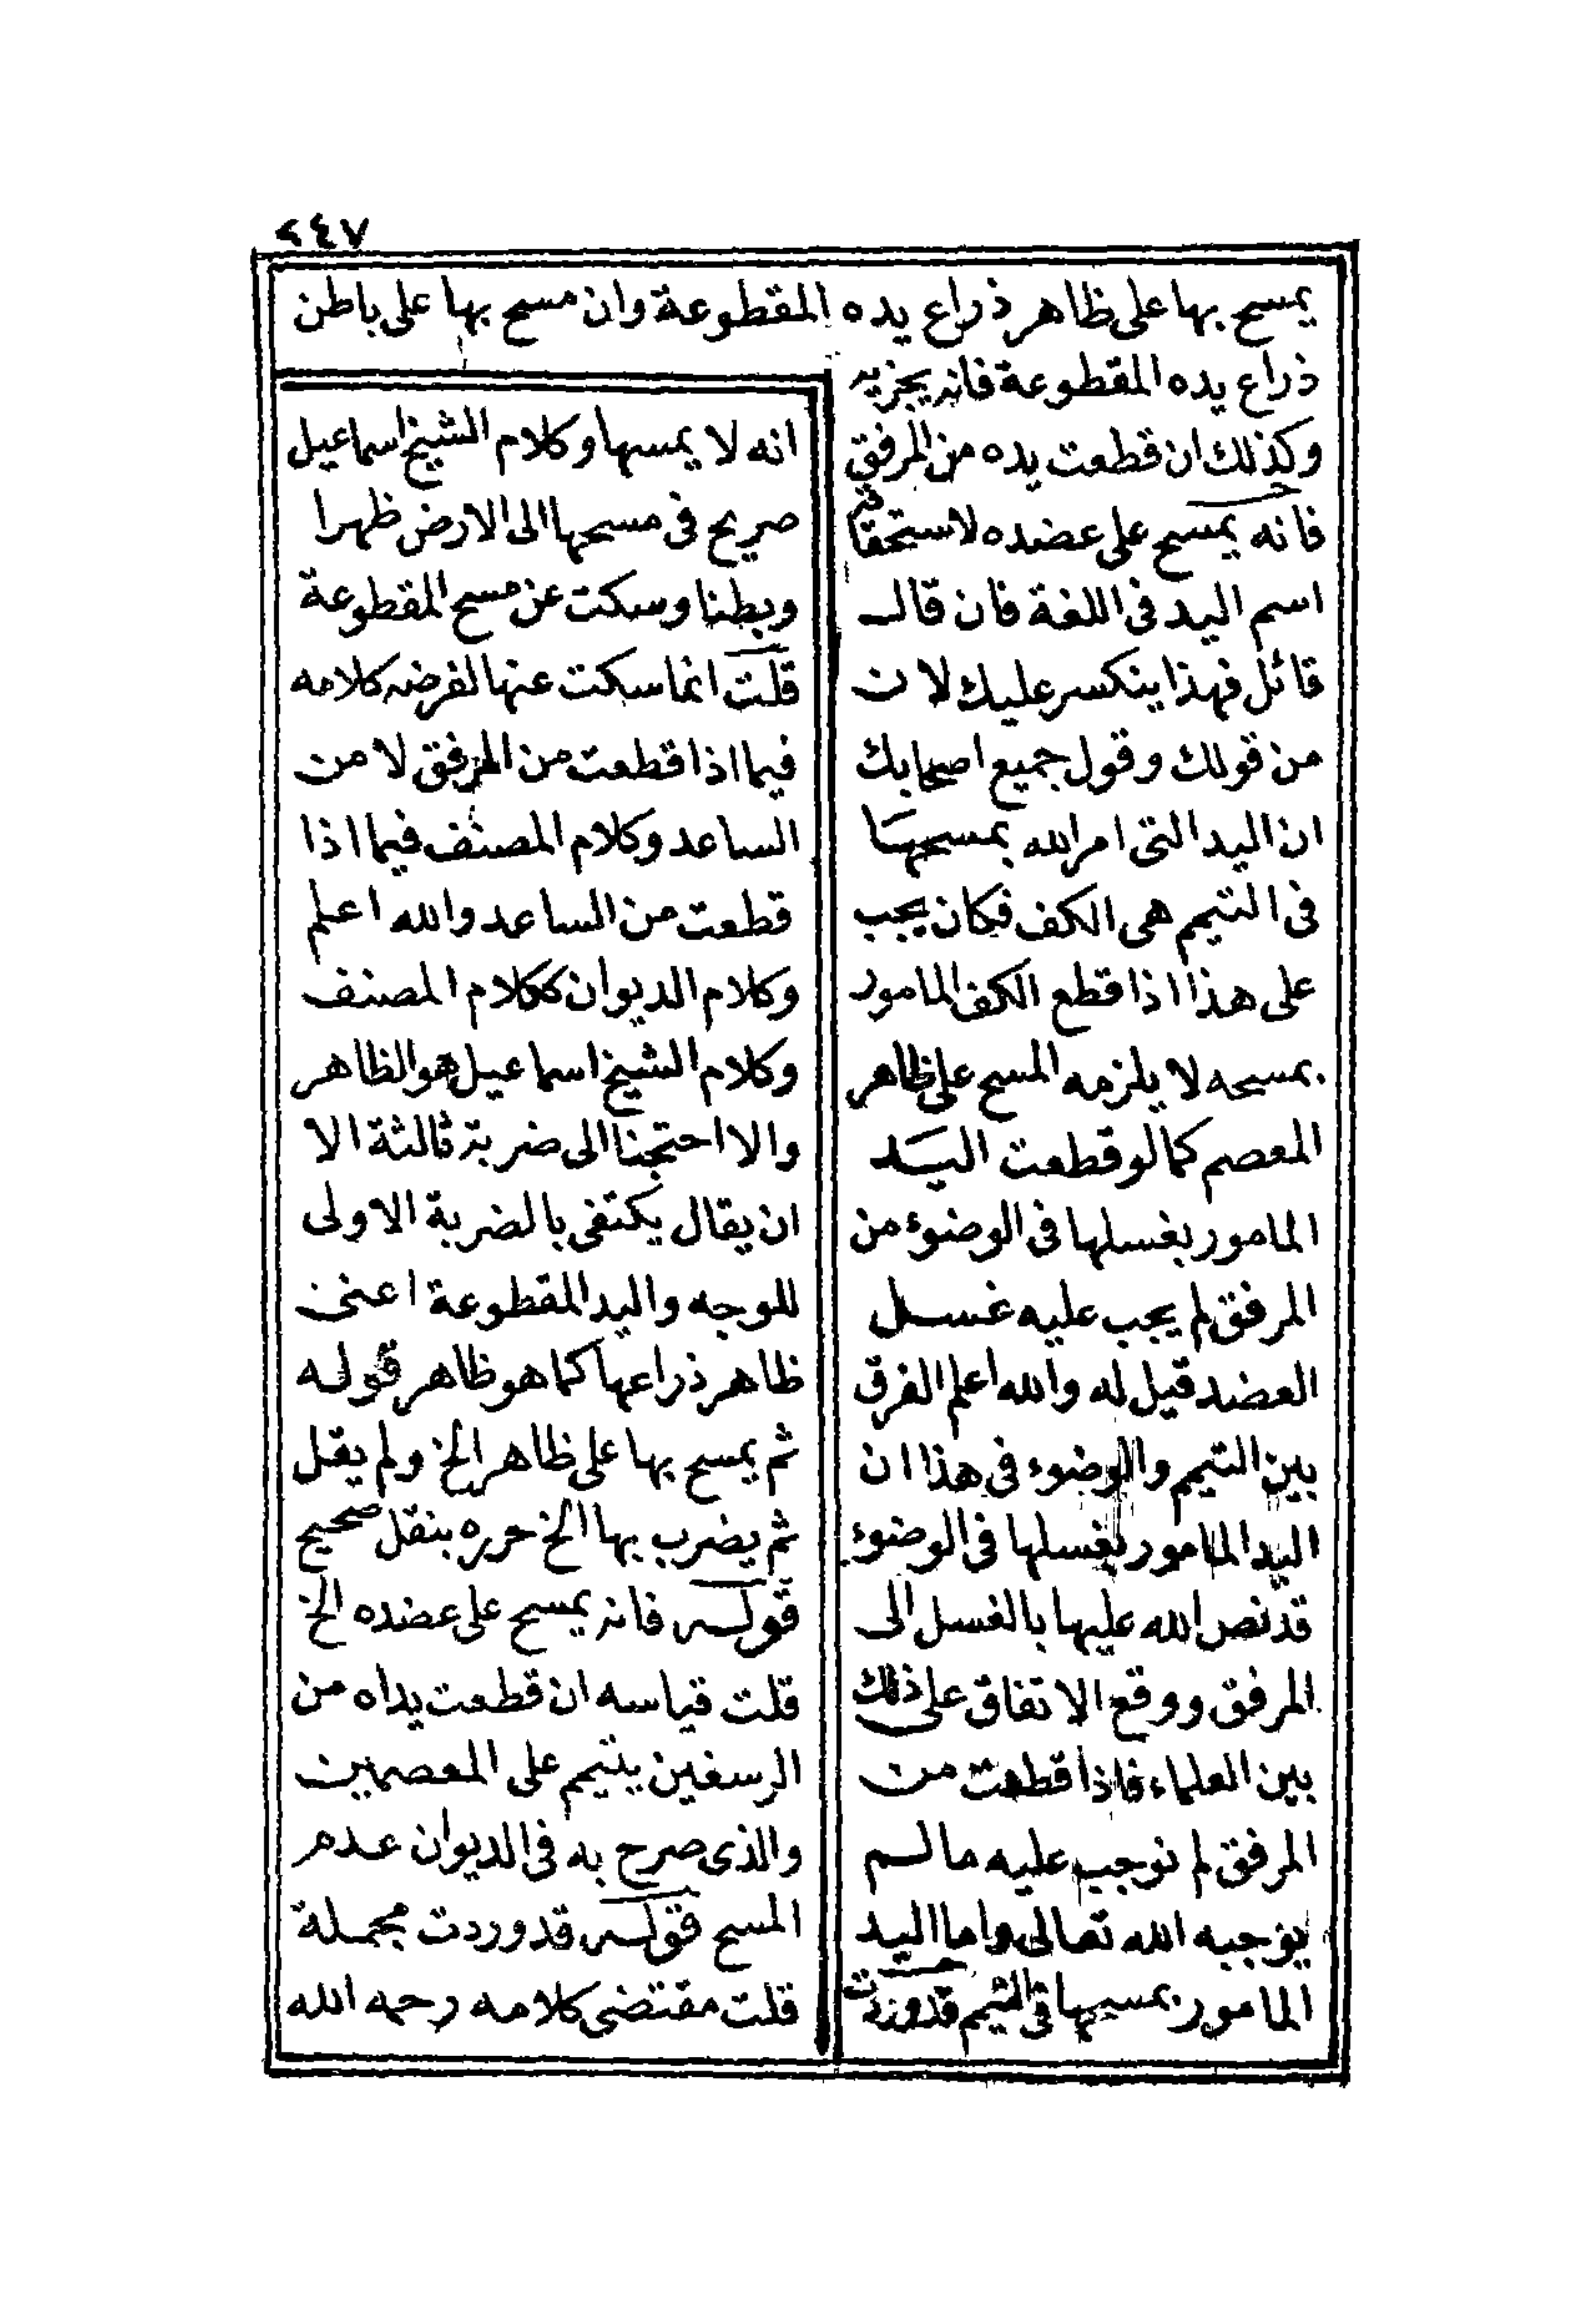 ٢٤٧
يمسح بها على ظاهر ذراع يده المقطوعة وان مسح بها على باطن
ذراع يده المقطوعة فانه يجزيه
وكذلك ان قطعت يده من المرفق
فانه يمسح على عضده لاستحقاقه
اسم اليد فى اللغة فان قال
قائل فهذا ينكسر عليك لان
من قولك وقول جميع اصحابك
ان اليد التى امر الله بمسحها
فى التيمم هى الكف فكان يجب
على هذا اذا قطع الكف المامور
بمسحه لا يلزمه المسح على ظاهر
المعصم كما لو قطعت اليد
المامور بغسلها فى الوضوء من
المرفق لم يجب عليه غسل
العضد قيل له والله اعلم الفرق
بين التيمم والوضوء فى هذا ان
اليد المامور بغسلها فى الوضوء
قد نص الله عليها بالغسل الى
المرفق ووقع الاتفاق على ذلك
بين العلماء فاذا قطعت من
المرفق لم نوجب عليه ما لم
يوجبه الله تعالى واما اليد
المامور بمسحها فى التيمم قد وردت
انه لا يمسها وكلام الشيخ اسماعيل
صريح فى مسحها الى الارض ظهرا
وبطنا وسكت عن مسح المقطوعة
قلت انما سكت عنها لفرضه كلامه
فيما اذا قطعت من المرفق لا من
الساعد وكلام المصنف فيما اذا
قطعت من الساعد والله اعلم
وكلام الديوان ككلام المصنف
وكلام الشيخ اسماعيل هو الظاهر
والا احتجنا الى ضربة ثالثة الا
ان يقال يكتفى بالضربة الاولى
للوجه واليد المقطوعة اعنى
ظاهر ذراعها كما هو ظاهر قوله
ثم يمسح بها على ظاهر الخ ولم يقل
ثم يضرب بها الخ حرره بنقل صحيح
قوله فانه يمسح على عضده الخ
قلت قياسه ان قطعت يداه من
الرسغين يتيمم على المعصمين
والذى صرح به فى الديوان عدم
المسح قوله قد وردت مجملة
قلت مقتضى كلامه رحمه الله